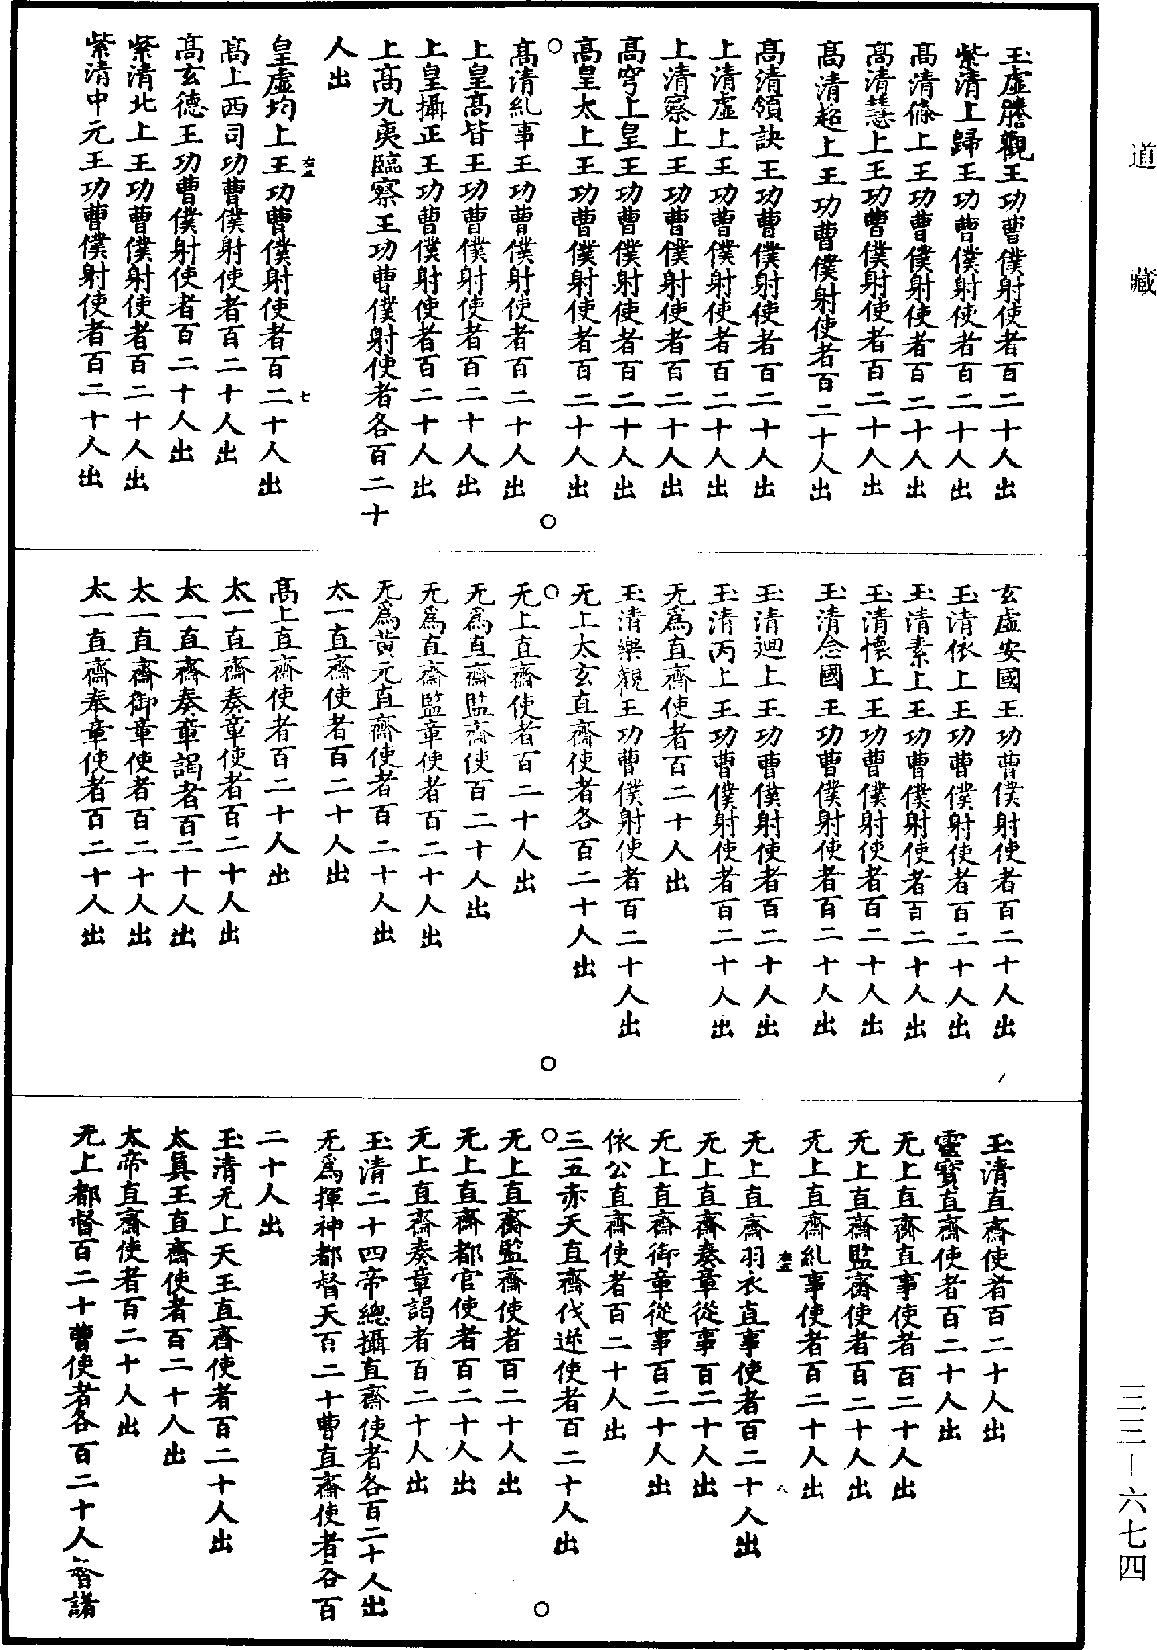 道藏
玉虛騰觀王功曹僕射使者百二十人出
紫清上歸王功曹僕射使者百二十人出
高清條上王功曹僕射使者百二十人出
高清慧上王功曹僕射使者百二十人出
高清超上王功曹僕射使者百二十人出
高清領訣王功曹僕射使者百二十人出
上清虛上王功曹僕射使者百二十人出
上清察上王功曹僕射使者百二十人出
高穹上皇王功曹僕射使者百二十人出
高皇太上王功曹僕射使者百二十人出
高清糺事王功曹僕射使者百二十人出
上皇高皆王功曹僕射使者百二十人出
上皇攝正王功曹僕射使者百二十人出
上高九夷臨察王功曹僕射使者各百二十
人出
七
皇虛均上王功曹僕射使者百二十人出
高上西司功曹僕射使者百二十人出
高玄德王功曹僕射使者百二十人出
紫清北上王功曹僕射使者百二十人出
紫清中元王功曹僕射使者百二十人出
玄虛安國王功曹僕射使者百二十人出
玉清依上王功曹僕射使者百二十人出
玉清素上王功曹僕射使者百二十人出
玉清懷上王功曹僕射使者百二十人出
玉清念國王功曹僕射使者百二十人出
玉清迴上王功曹僕射使者百二十人出
玉清丙上王功曹僕射使者百二十人出
无為直齋使者百二十人出
玉清樂觀王功曹僕射使者百二十人出
无上太玄直齋使者各百二十人出
无上直齋使者百二十人出
无為直齋監齋使百二十人出
无為直齋監章使者百二十人出
无為黃元直齋使者百二十人出
太一直齋使者百二十人出
高上直齋使者百二十人出
太一直齋奏章使者百二十人出
太一直齋奏章謁者百二十人出
太一直齋御章使者百二十人出
太一直齋奉章使者百二十人出
玉清直齋使者百二十人出
靈寶直齋使者百二十人出
无上直齋直事使者百二十人出
无上直齋監齋使者百二十人出
无上直齋糺事使者百二十人出
八
无上直齋羽衣直事使者百二十人出
无上直齋奏章從事百二十人出
无上直齋御章從事百二十人出
依公直齋使者百二十人出
三五赤天直齋伐逆使者百二十人出
无上直齋監齋使者百二十人出
无上直齋都官使者百二十人出
无上直齋奏章謁者百二十人出
玉清二十四帝總攝直齋使者各百二十人出
无為揮神都督天百二十曹直齋使者各百
二十人出
玉清无上天王直齋使者百二十人出
太真王直齋使者百二十人出
太帝直齋使者百二十人出
无上都督百二十曹使者各百二十人督諸
三三—六七四